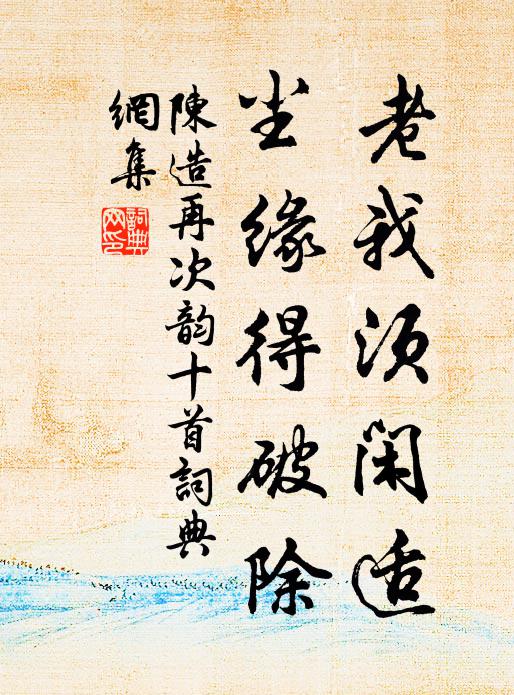 老我须闲适
尘缘得破除
陳造再次韵十首詞典
網集
詞典
网印